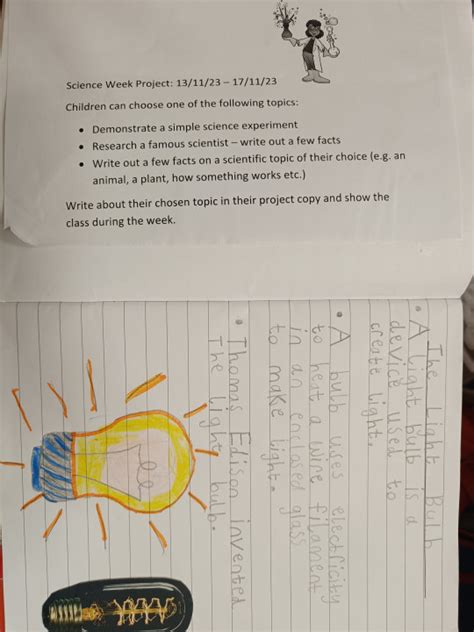 Science Week Project: 13/11/23 – 17/11/23
Children can choose one of the following topics:
• Demonstrate a simple science experiment
• Research a famous scientist – write out a few facts
• Write out a few facts on a scientific topic of their choice (e.g. an
animal, a plant, how something works etc.)
Write about their chosen topic in their project copy and show the
class during the week.
The Light Bulb
• A light bulb is a
device used to
create light.
• A bulb uses electricity
to heat a wire filament
in an enclosed glass
to make light.
• Thomas Edison invented
The light bulb.